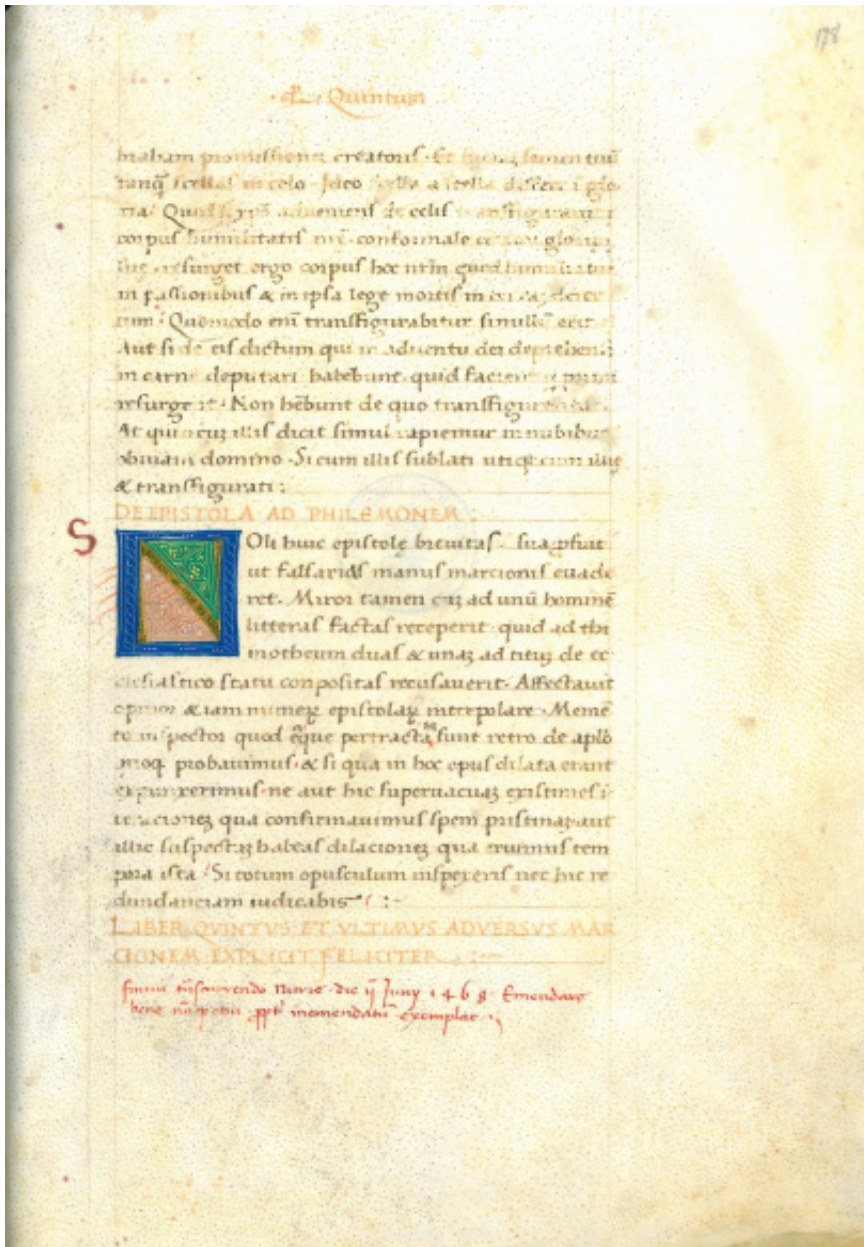 178
Quintus
braham promissionem creatoris. Et
tanq̃ stellas in celo. Ideo stella a stella differt i glo
ria. Quod si xp̃s adveniens de celis transfigurabit
corpus humilitatis nr̃e. conformale corpori glorię
resurget ergo corpus hoc nrm̃ quod humiliatur
in passionibus & in ipsa lege mortis in
tum. Quomodo enĩ transfigurabitur si nullũ erit
Aut si de eis dictum qui in adventu dei
in carne deputari habebunt. quid facient qui primi
resurgent. Non hẽbunt de quo transfigurentur.
At qui cuʒ illis dicit simul rapiemur in nubibus
obviam domino. Si cum illis sublati utiq̃ cum illis
& transfigurati :
DE EPISTOLA AD PHILEMONEM :
S
Oli huic epistolę brevitas. sua
ut falsarias manus marcionis evade
ret. Miror tamen cuʒ ad unũ hominẽ
litteras factas receperit quid ad thi
motheum duas & unaʒ ad tituʒ de ec
clesiastico statu conpositas recusaverit. Affectavit
opinor & iam epistolaꝝ interpolare. Memẽ
to inspector quod pertractata sunt retro de aplõ
probavimus. & si qua in hoc opus dilata erant
expunxerimus. ne aut hic supervacuaʒ existimes i
teracioneʒ qua confirmavimus spem pristinaʒ aut
illic suspectaʒ habeas dilacioneʒ qua eruimus tem
pora ista. Si totum opusculum inspexeris nec hic re
dundanciam iudicabis :-
LIBER QVINTVS ET VLTIMVS ADVERSVS MAR
CIONEM EXPLICIT FELICITER :
finivi die Juny 1468. Emendare
bene inemendatũ exemplar